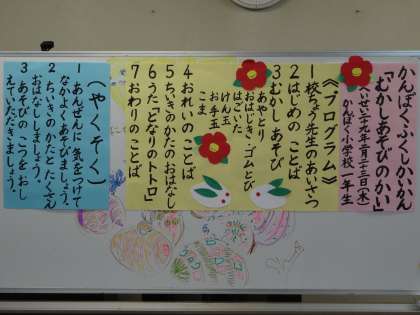 かんぱくふくしかいかん
「むかしあそびのかい」
へいせい二十九年二月二十三日(木)
かんぱく小学校一年生
《プログラム》
1 校ちょう先生のあいさつ
2 はじめのことば
3 むかしあそび
あやとり
おはじき・ゴムとび
はごいた
けん玉
お手玉
こま
4 おれいのことば
5 ちいきのかたのおはなし
6 うた「となりのトトロ」
7 おわりのことば
(やくそく)
1 あんぜんに気をつけて
なかよくあそびましょう。
2 ちいきのかたとたくさん
おはなししましょう。
3 あそびのこつをおし
えていただきましょう。